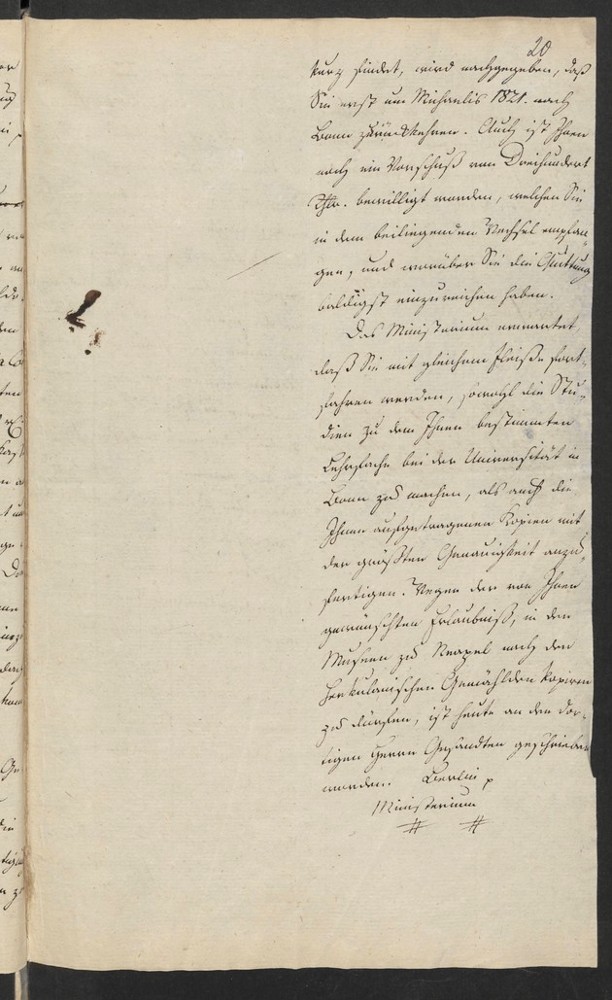 20
kurz findet, wird nachgegeben, daß
Sie erst um Michaelis 1821. nach
Bonn zurückkehren. Auch ist Ihnen
noch ein Vorschuß von Dreihundert
Thlr. bewilligt worden, welchen Sie
in dem beiliegenden Wechsel empfan-
gen, und worüber Sie die Quittung
baldigst einzureichen haben.
Das Ministerium erwartet,
daß Sie mit gleichem Fleiße fort-
fahren werden, sowohl die Stu-
dien zu dem Ihnen bestimmten
Lehrfache bei der Universität in
Bonn zu machen, als auch die
Ihnen aufgetragenen Kopien mit
der größten Genauigkeit anzu-
fertigen. Wegen der von Ihnen
gewünschten Erlaubniß, in den
Museen zu Neapel nach den
Herkulanischen Gemählden kopiren
zu dürfen, ist heute an den dor-
tigen Herrn Gesandten geschrieben
worden. Berlin
Ministerium